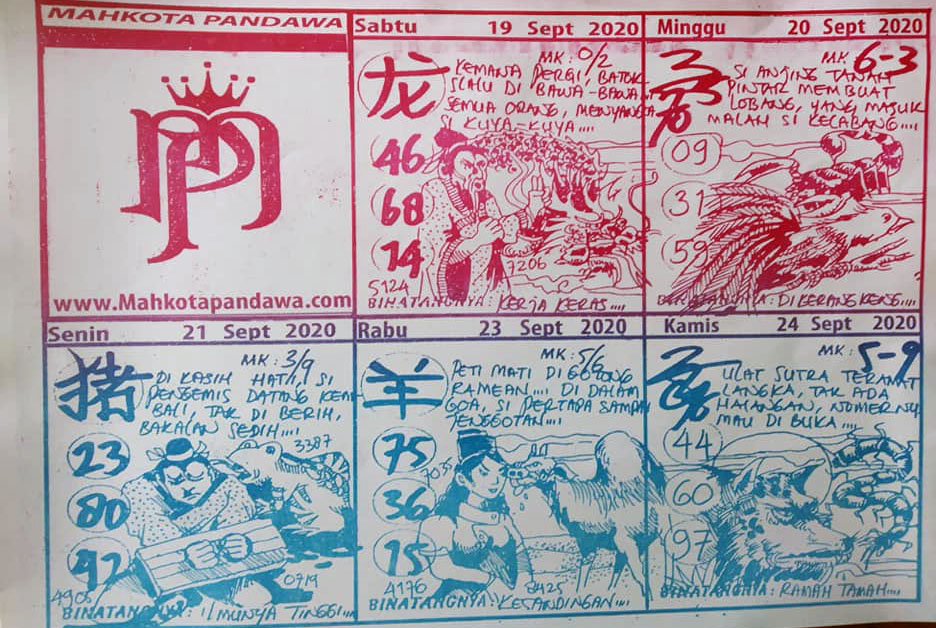 MAHKOTA PANDAWA
www.Mahkotapandawa.com
Sabtu 19 Sept 2020
龙
MK: 0/2
KEMANA PERGI, BATOK
SLALU DI BAWA-BAWA...
SEMUA ORANG, MENYANGKA
SI KUYA-KUYA....
46
68
74
5124
7206
BINATANGNYA: KERJA KERAS....
Minggu 20 Sept 2020
MK: 6-3
SI ANJING TANAH
PINTAR MEMBUAT
LOBANG, YANG MASUK
MALAH SI KELABANG....
09
31
59
BINATANGNYA: DI KERANGKENG....
Senin 21 Sept 2020
猪
MK: 3/9
DI KASIH HATI, SI
PENGEMIS DATANG KEM
BALI, TAK DI BERIH,
BAKALAN SEDIH....
23
80
92
3387
0719
BINATANGNYA: ILMUNYA TINGGI....
Rabu 23 Sept 2020
羊
MK: 5/6
PETI MATI DI GOTONG
RAMEAN.... DI DALAM
GOA, SI PERTAPA SAMPAI
JENGGOTAN....
75
36
15
4176
8425
BINATANGNYA: KESANDINGAN....
Kamis 24 Sept 2020
MK: 5-9
ULAT SUTRA TERAMAT
LANGKA, TAK ADA
HALANGAN, NOMERNYA
MAU DI BUKA....
44
60
97
BINATANGNYA: RAMAH TAMAH....